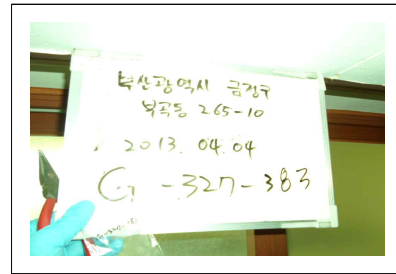 부산광역시 금정구
부곡동 265-10
2013. 04. 04
G-327-383